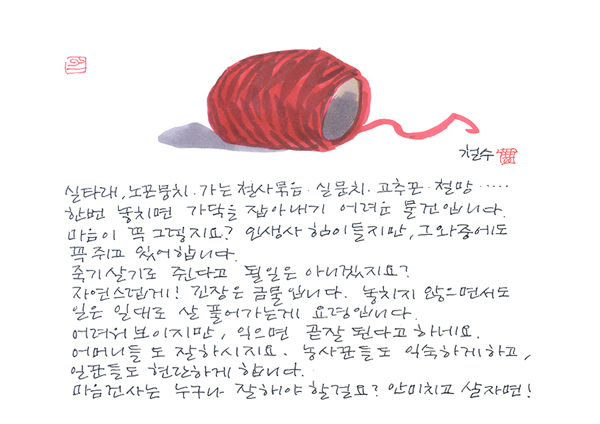 철수
실타래, 노끈뭉치. 가는 철사묶음. 실뭉치. 고추끈. 철망 .....
한번 놓치면 가닥을 잡아내기 어려운 물건입니다.
마음이 꼭 그렇지요? 인생사 힘이들지만, 그 와중에도
꼭 쥐고 있어야합니다.
죽기살기로 쥔다고 될일은 아니겠지요?
자연스럽게! 긴장은 금물입니다. 놓치지 않으면서도
일은 일대로 살 풀어가는게 요령입니다.
어려워 보이지만, 익으면 곧잘 된다고 하네요.
어머니들도 잘하시지요. 농사꾼들도 익숙하게 하고,
일꾼들도 현란하게 합니다.
마음건사는 누구나 잘해야 할걸요? 안미치고 살자면!